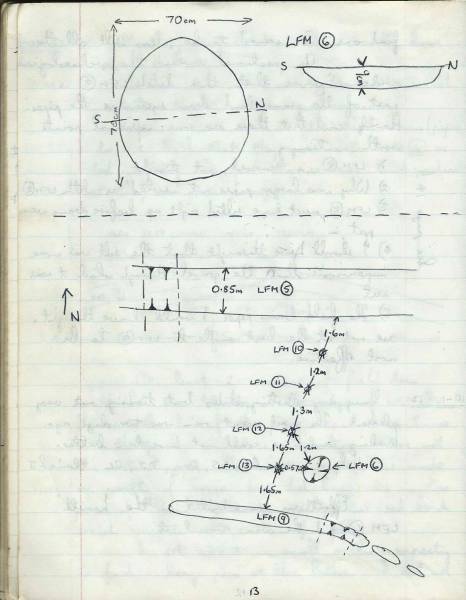 70cm
LFM ⑥
S N
70cm
S N
0.85m LFM ⑤
N
1.6m
LFM ⑩
1.2m
LFM ⑪
1.3m
LFM ⑫
1.65m 1.2m
LFM ⑬ 0.57m LFM ⑥
1.65m
LFM ⑨
13